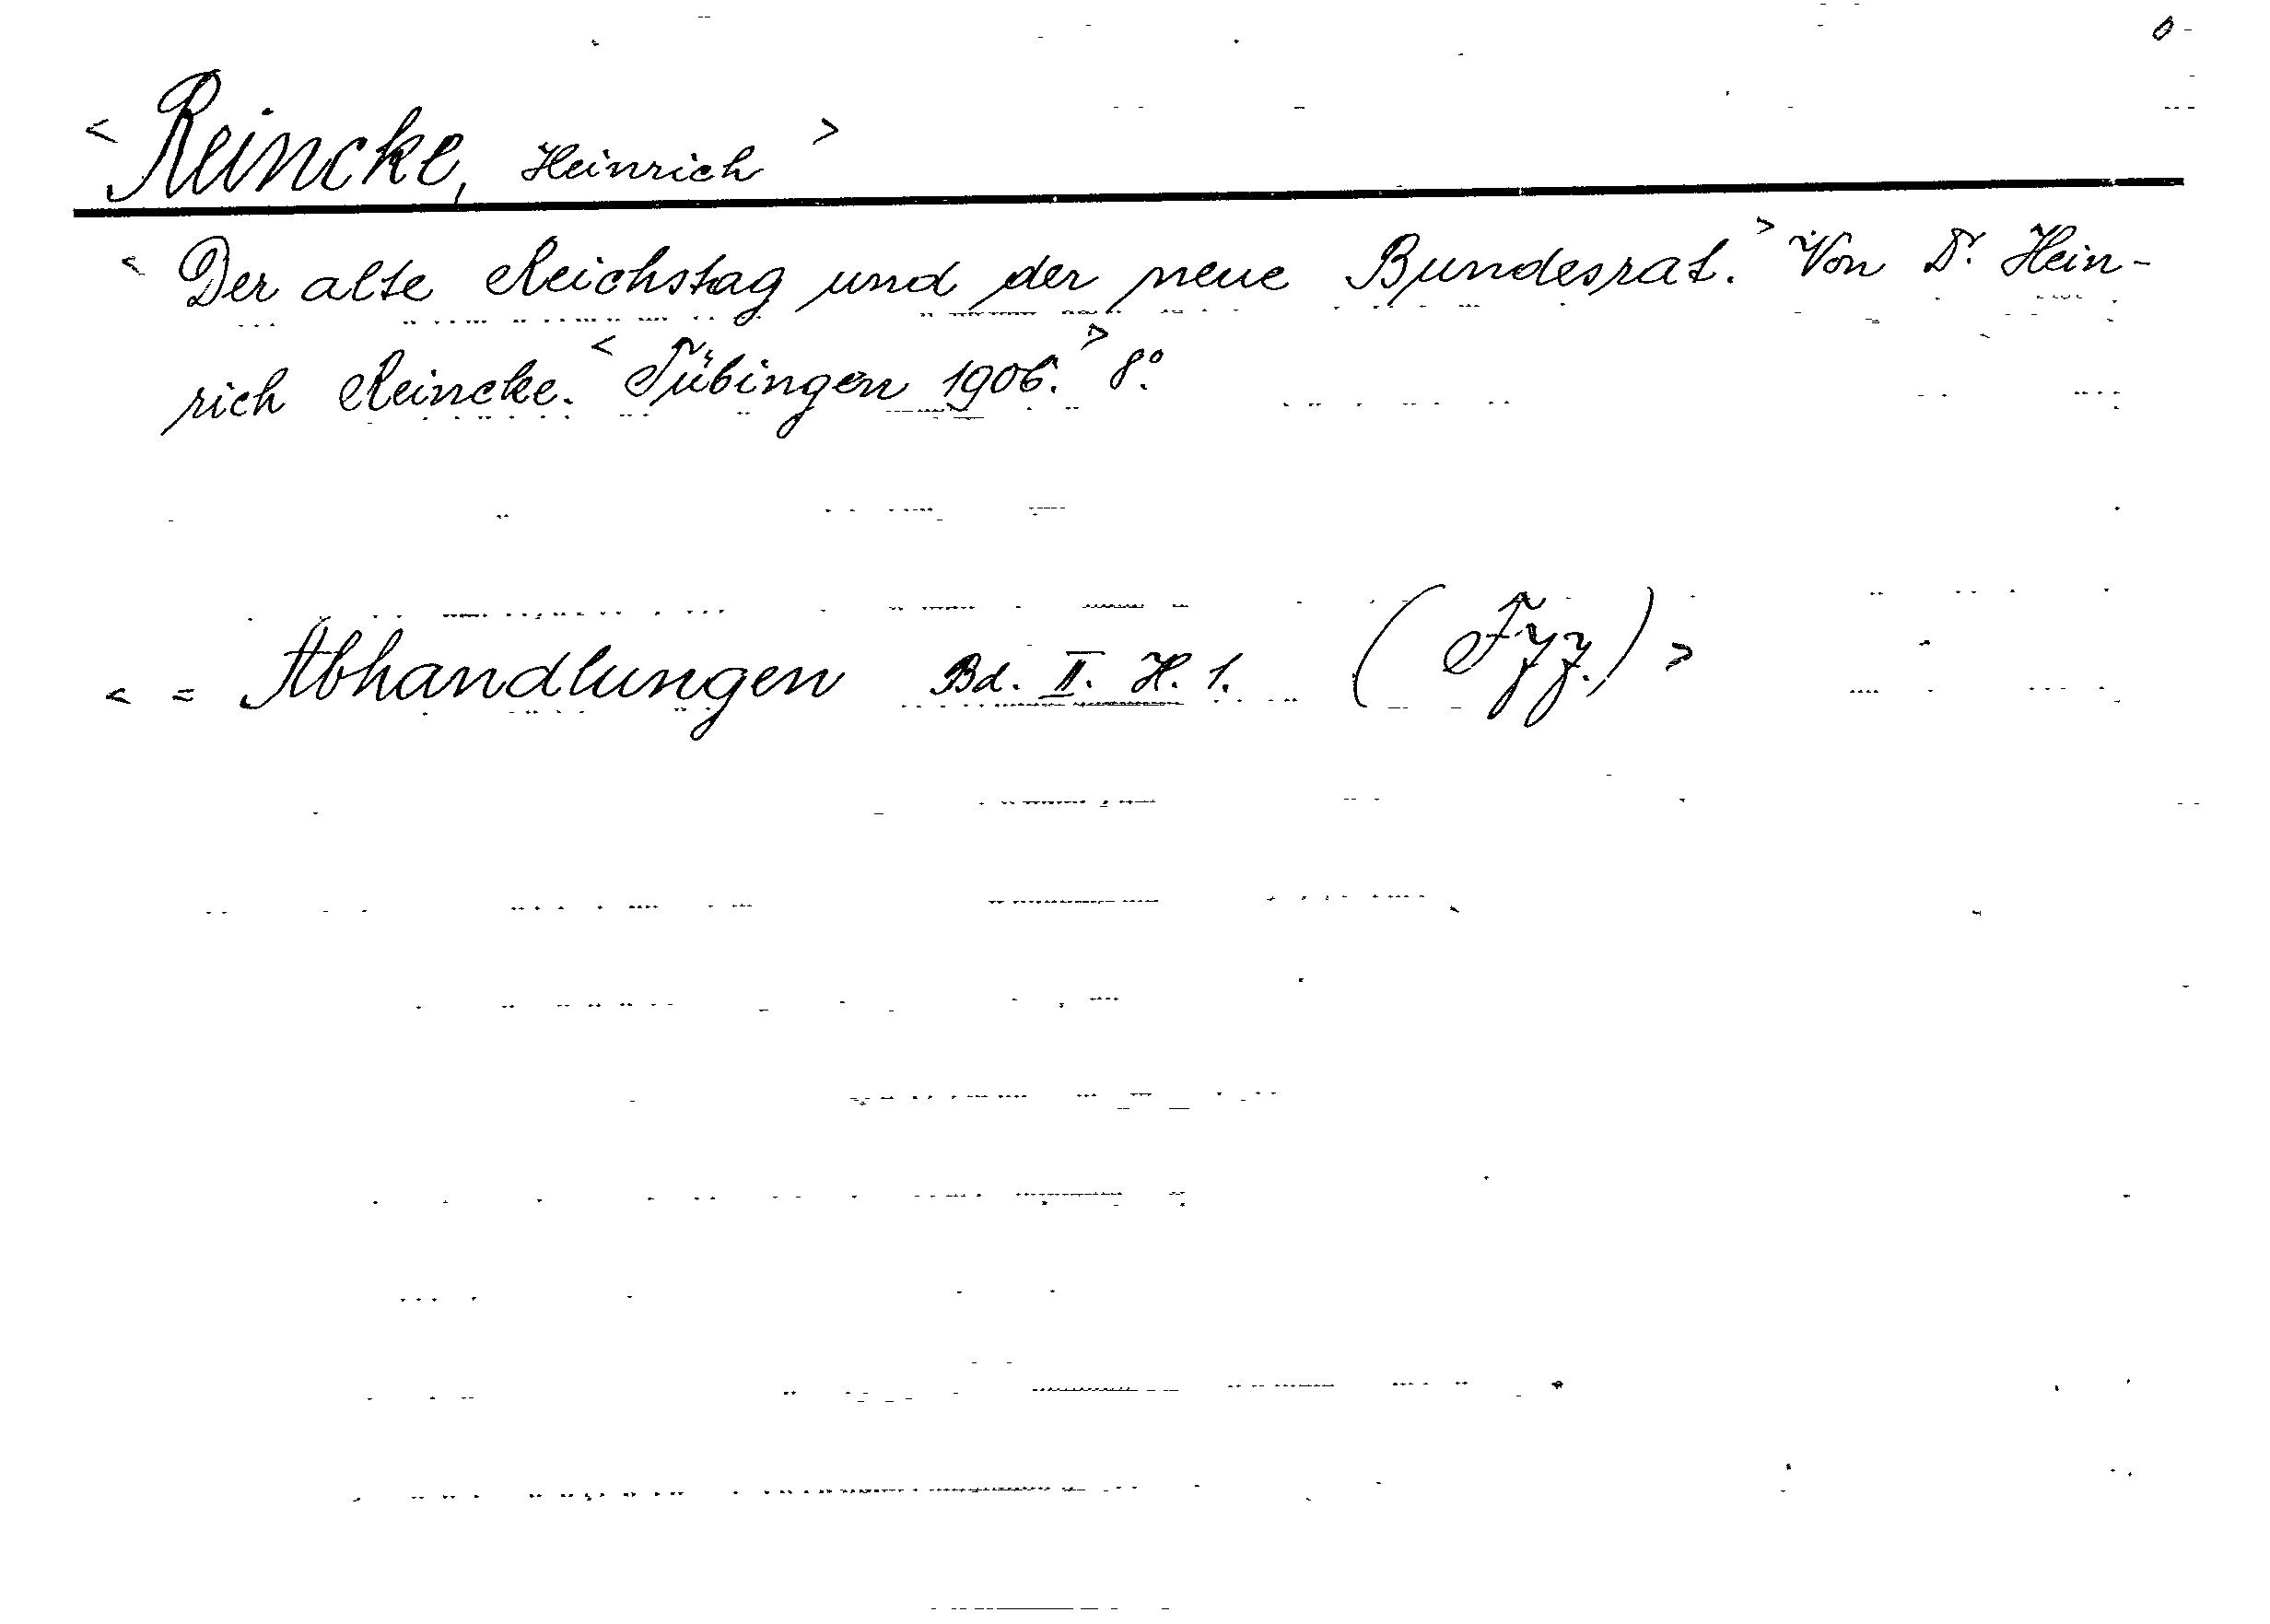 < Reincke, Heinrich >
< Der alte Reichstag und der neue Bundesrat. > Von Dr. Hein-
rich Reincke. < Tübingen 1906. > 8°.
< = Abhandlungen Bd. II. H. 1. (Fyz.) >